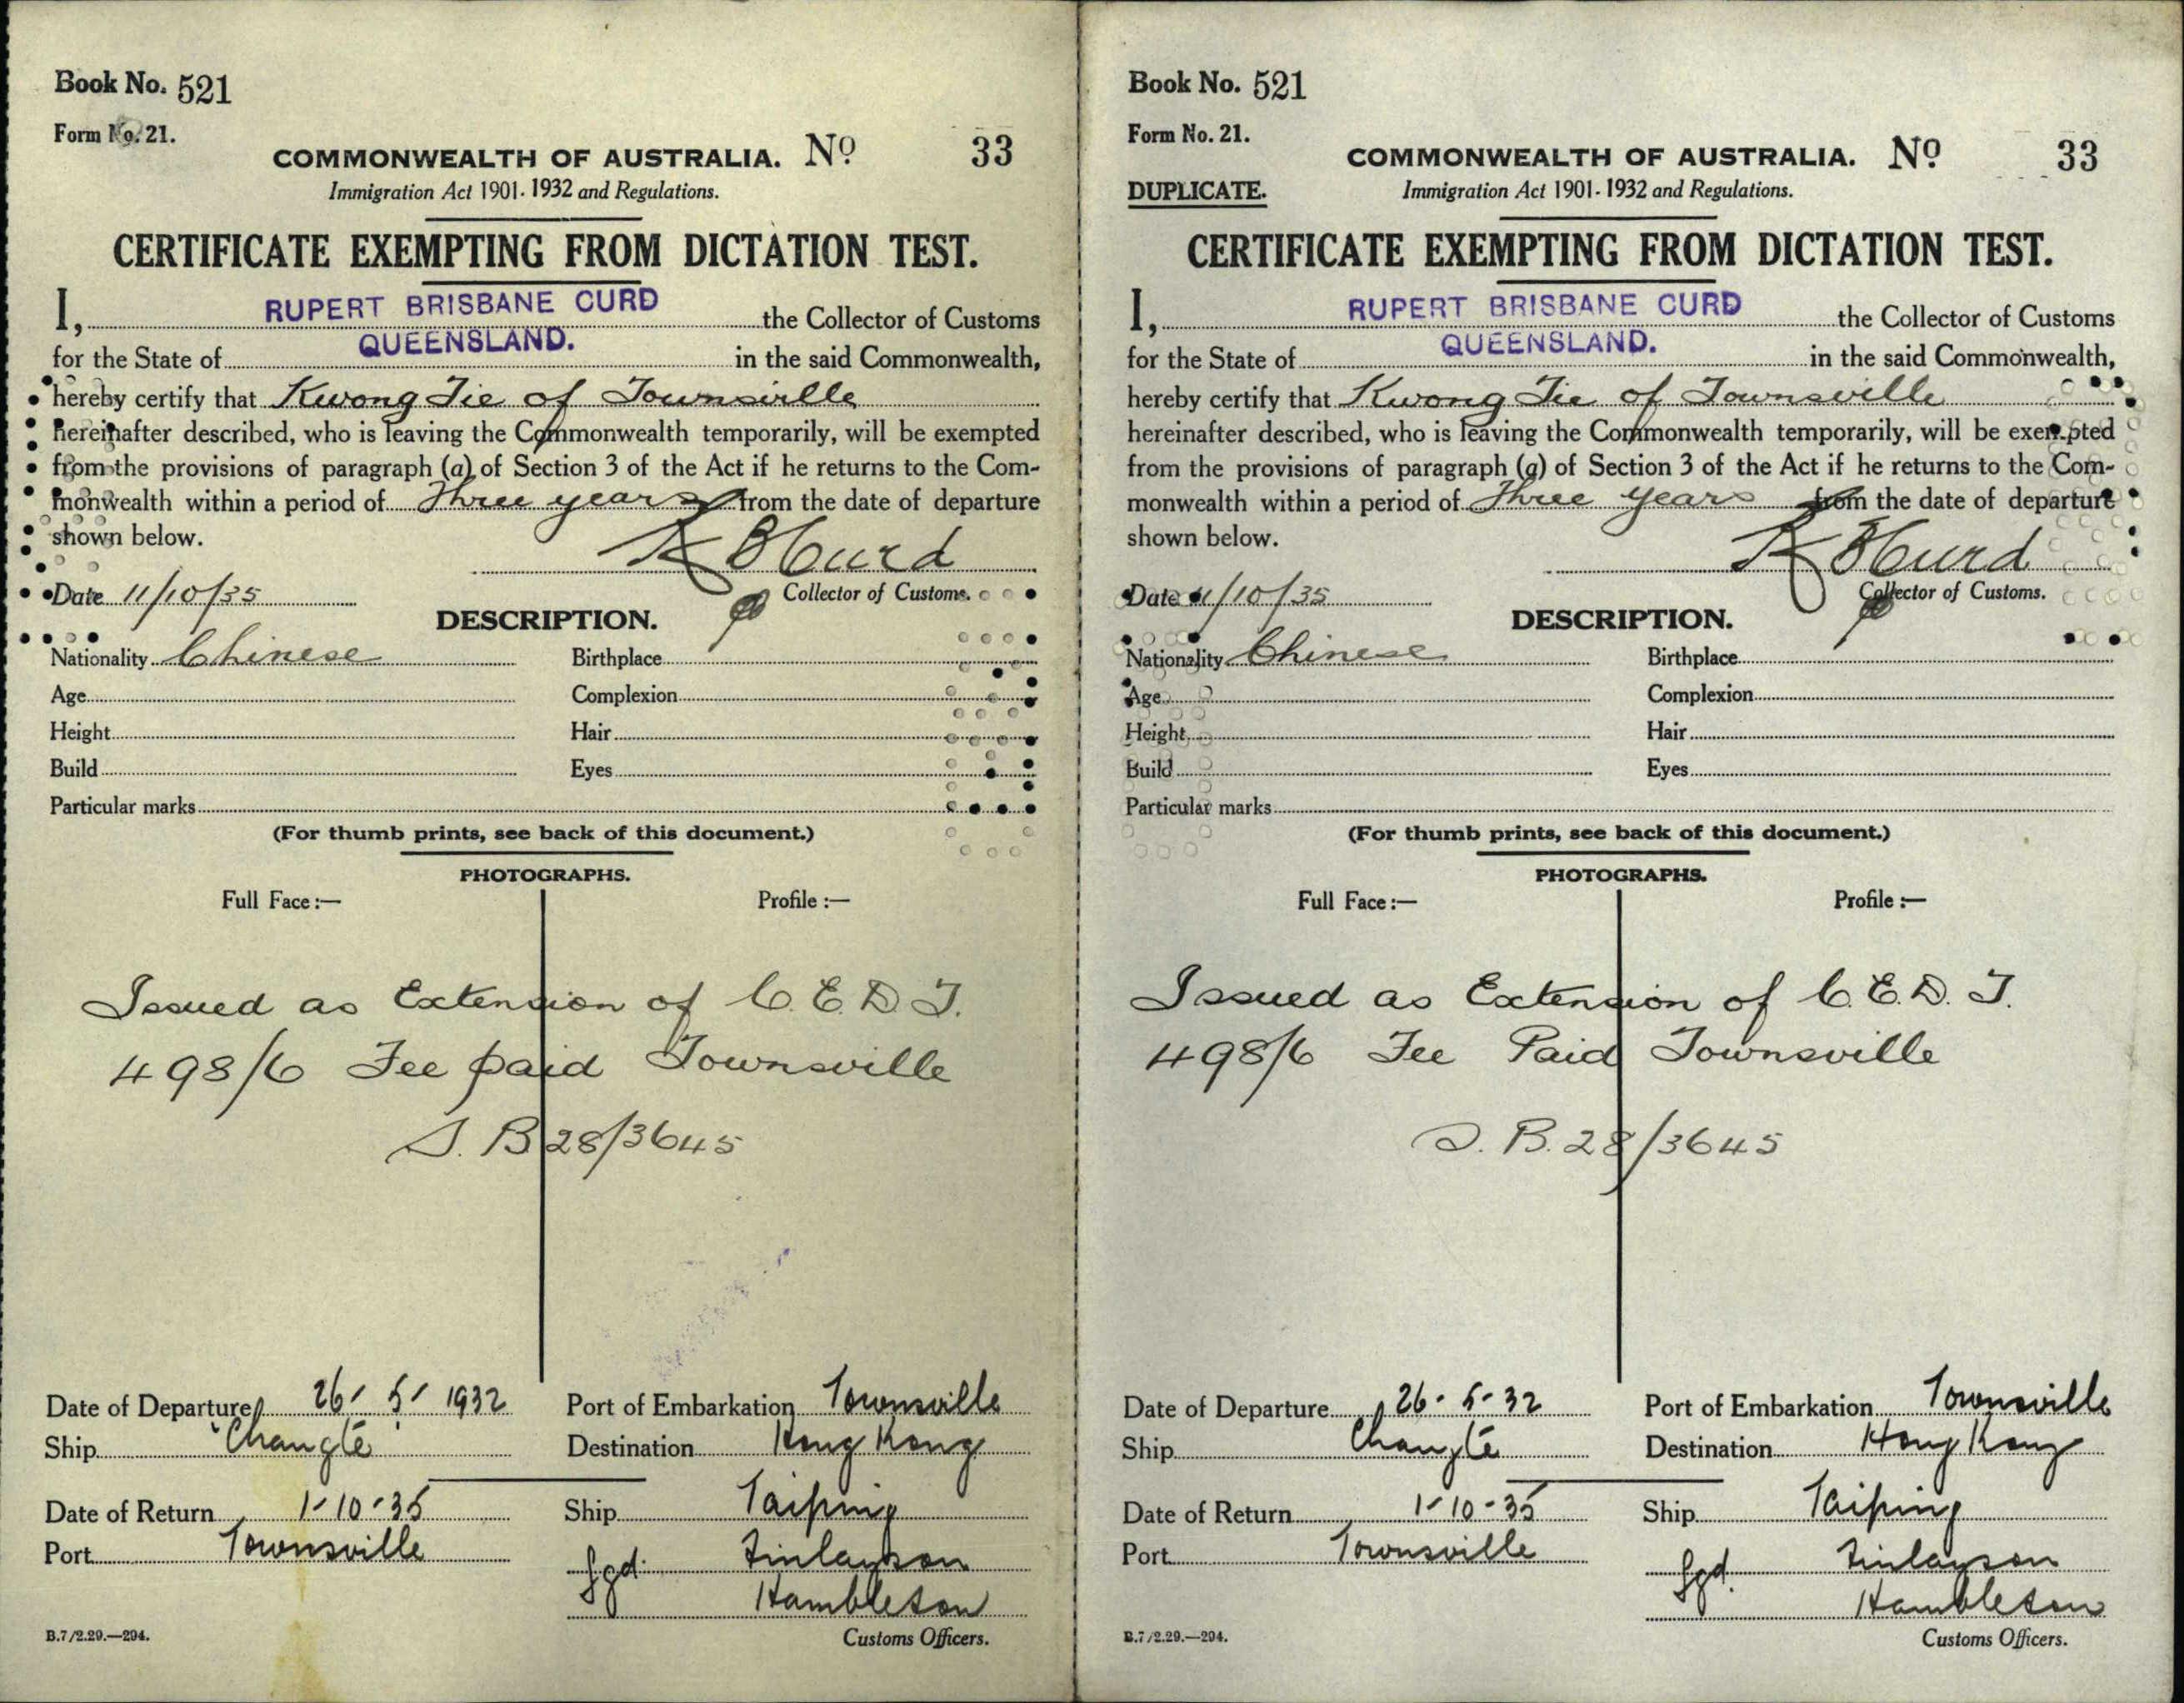 Book No. 521
Form No. 21.
COMMONWEALTH OF AUSTRALIA. Nº 33
Immigration Act 1901-1932 and Regulations.
CERTIFICATE EXEMPTING FROM DICTATION TEST.
I, RUPERT BRISBANE CURD the Collector of Customs
for the State of QUEENSLAND. in the said Commonwealth,
hereby certify that Kwong Tie of Townsville
hereinafter described, who is leaving the Commonwealth temporarily, will be exempted
from the provisions of paragraph (a) of Section 3 of the Act if he returns to the Com-
monwealth within a period of Three years from the date of departure
shown below.
R B Curd
Date 11/10/35 Collector of Customs.
DESCRIPTION.
Nationality Chinese Birthplace
Age Complexion
Height Hair
Build Eyes
Particular marks
(For thumb prints, see back of this document.)
PHOTOGRAPHS.
Full Face :— Profile :—
Issued as Extension of C.E.D.T.
498/6 Fee paid Townsville
S.B 28/3645
Date of Departure 26/5/1932 Port of Embarkation Townsville
Ship "Changte" Destination Hong Kong
Date of Return 1-10-35 Ship Taiping
Port Townsville Sgd. Finlayson
Hambleton
B.7/2.29.—294. Customs Officers.
Book No. 521
Form No. 21.
COMMONWEALTH OF AUSTRALIA. Nº 33
DUPLICATE. Immigration Act 1901-1932 and Regulations.
CERTIFICATE EXEMPTING FROM DICTATION TEST.
I, RUPERT BRISBANE CURD the Collector of Customs
for the State of QUEENSLAND. in the said Commonwealth,
hereby certify that Kwong Tie of Townsville
hereinafter described, who is leaving the Commonwealth temporarily, will be exempted
from the provisions of paragraph (a) of Section 3 of the Act if he returns to the Com-
monwealth within a period of Three years from the date of departure
shown below.
R B Curd
Date 11/10/35 Collector of Customs.
DESCRIPTION.
Nationality Chinese Birthplace
Age Complexion
Height Hair
Build Eyes
Particular marks
(For thumb prints, see back of this document.)
PHOTOGRAPHS.
Full Face :— Profile :—
Issued as Extension of C.E.D.T.
498/6 Fee Paid Townsville
S.B. 28/3645
Date of Departure 26-5-32 Port of Embarkation Townsville
Ship Changte Destination Hong Kong
Date of Return 1-10-35 Ship Taiping
Port Townsville Sgd. Finlayson
Hambleton
B.7/2.29.—294. Customs Officers.